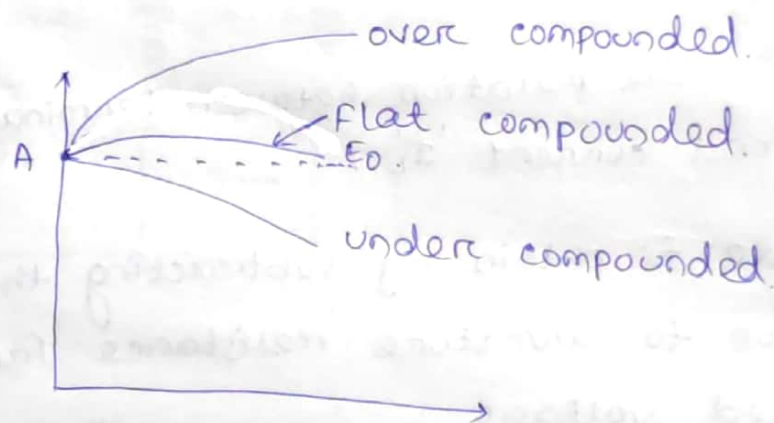 over compounded.
Flat compounded.
A
E0.
under compounded.